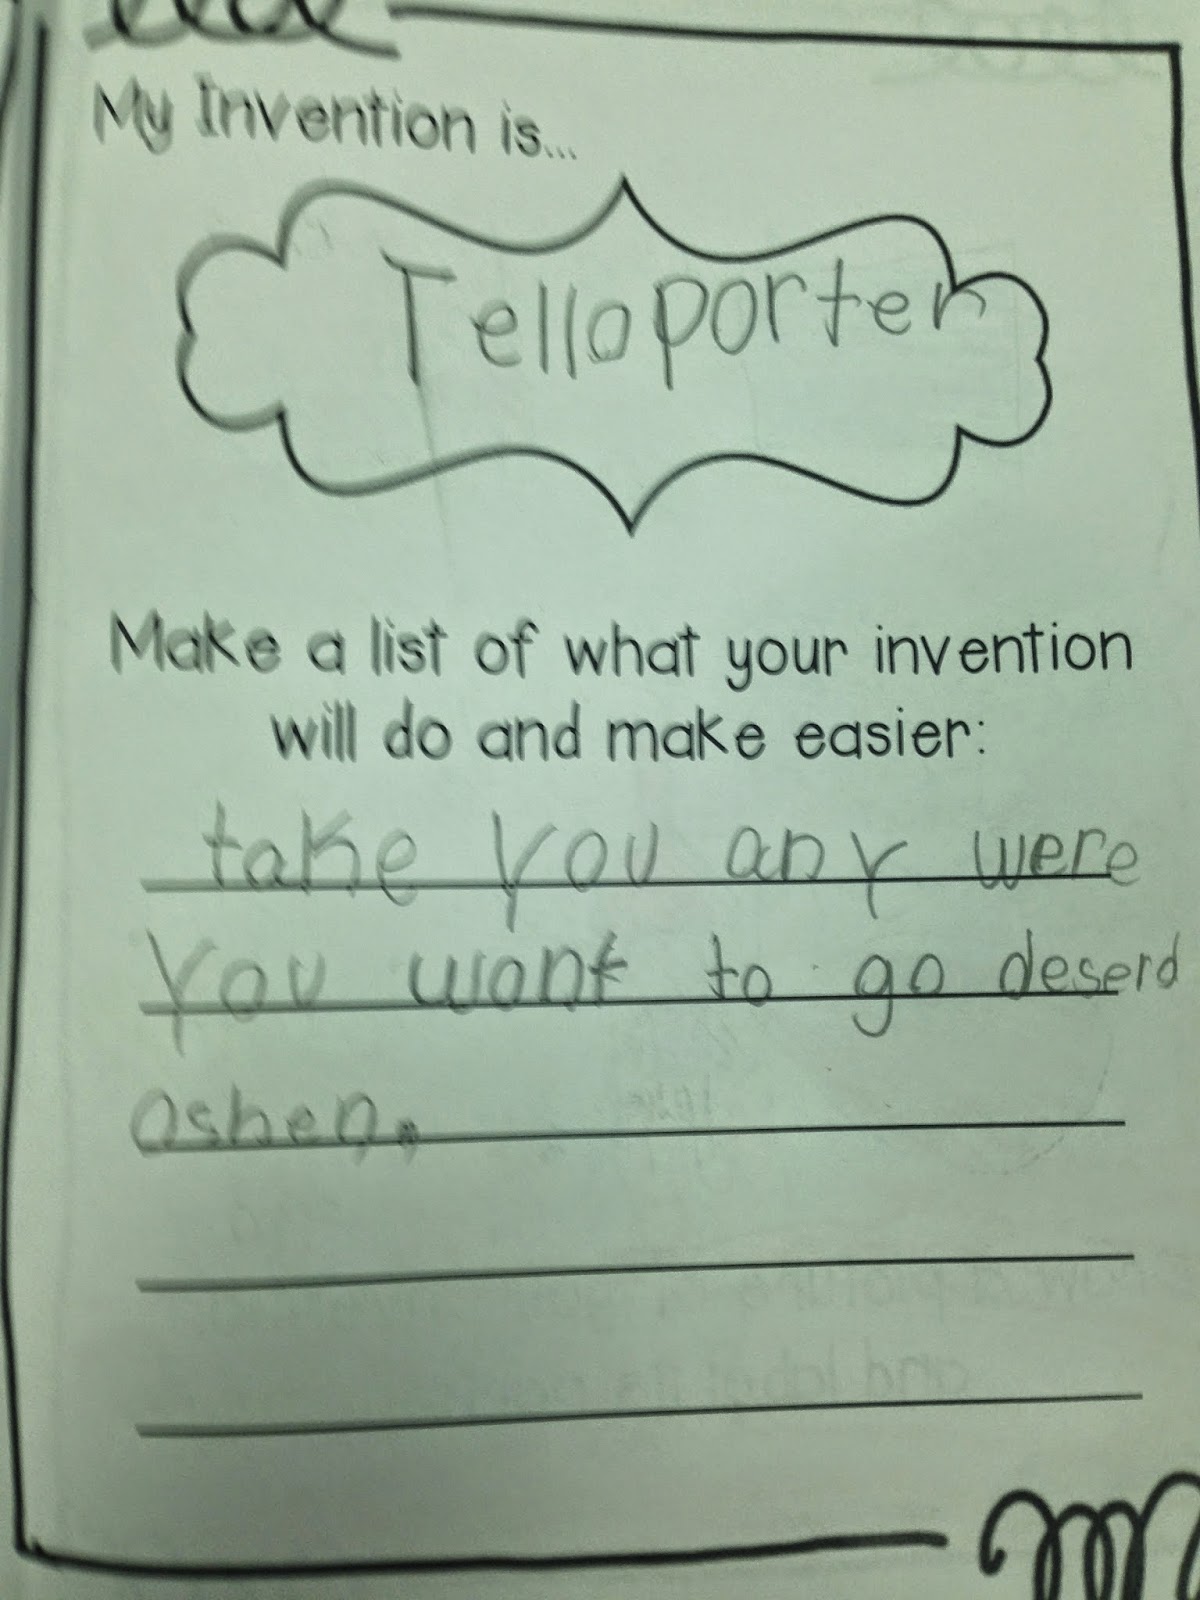 My Invention is...
Telloporter
Make a list of what your invention
will do and make easier:
take you any were
you wont to go deserd
oshen.